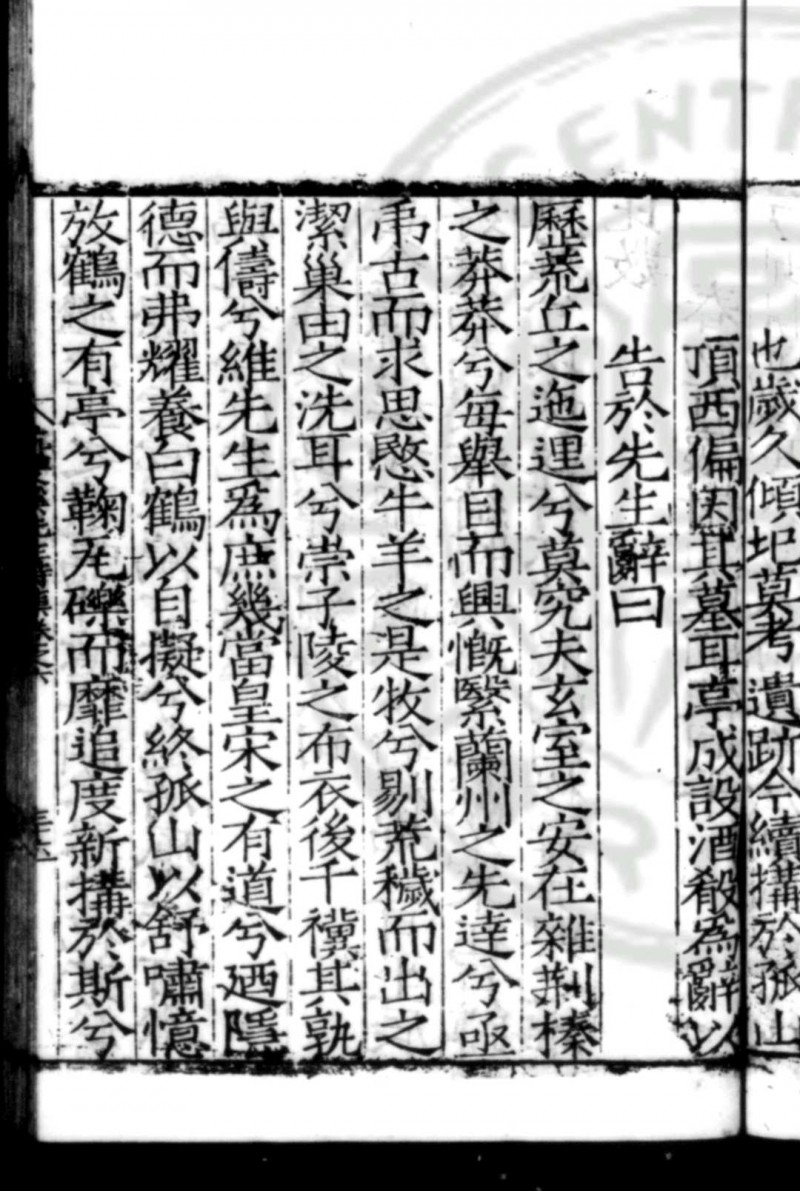 也歲久傾圯莫考遺跡今續搆於孤山
頂西偏因其墓耳亭成設酒殽為辭以
告於先生辭曰
歷荒丘之迤邐兮莫究夫玄室之安在雜荆榛
之莽莽兮每舉目而興慨繄蘭州之先達兮亟
禹古而求思愍牛羊之是牧兮剔荒穢而出之
潔巢由之洗耳兮崇子陵之布衣後千禩其孰
與儔兮維先生為庶幾當皇宋之有道兮廼隱
德而弗耀養曰鶴以自擬兮終孤山以舒嘯憶
放鶴之有亭兮鞠瓦礫而靡追度新搆於斯兮